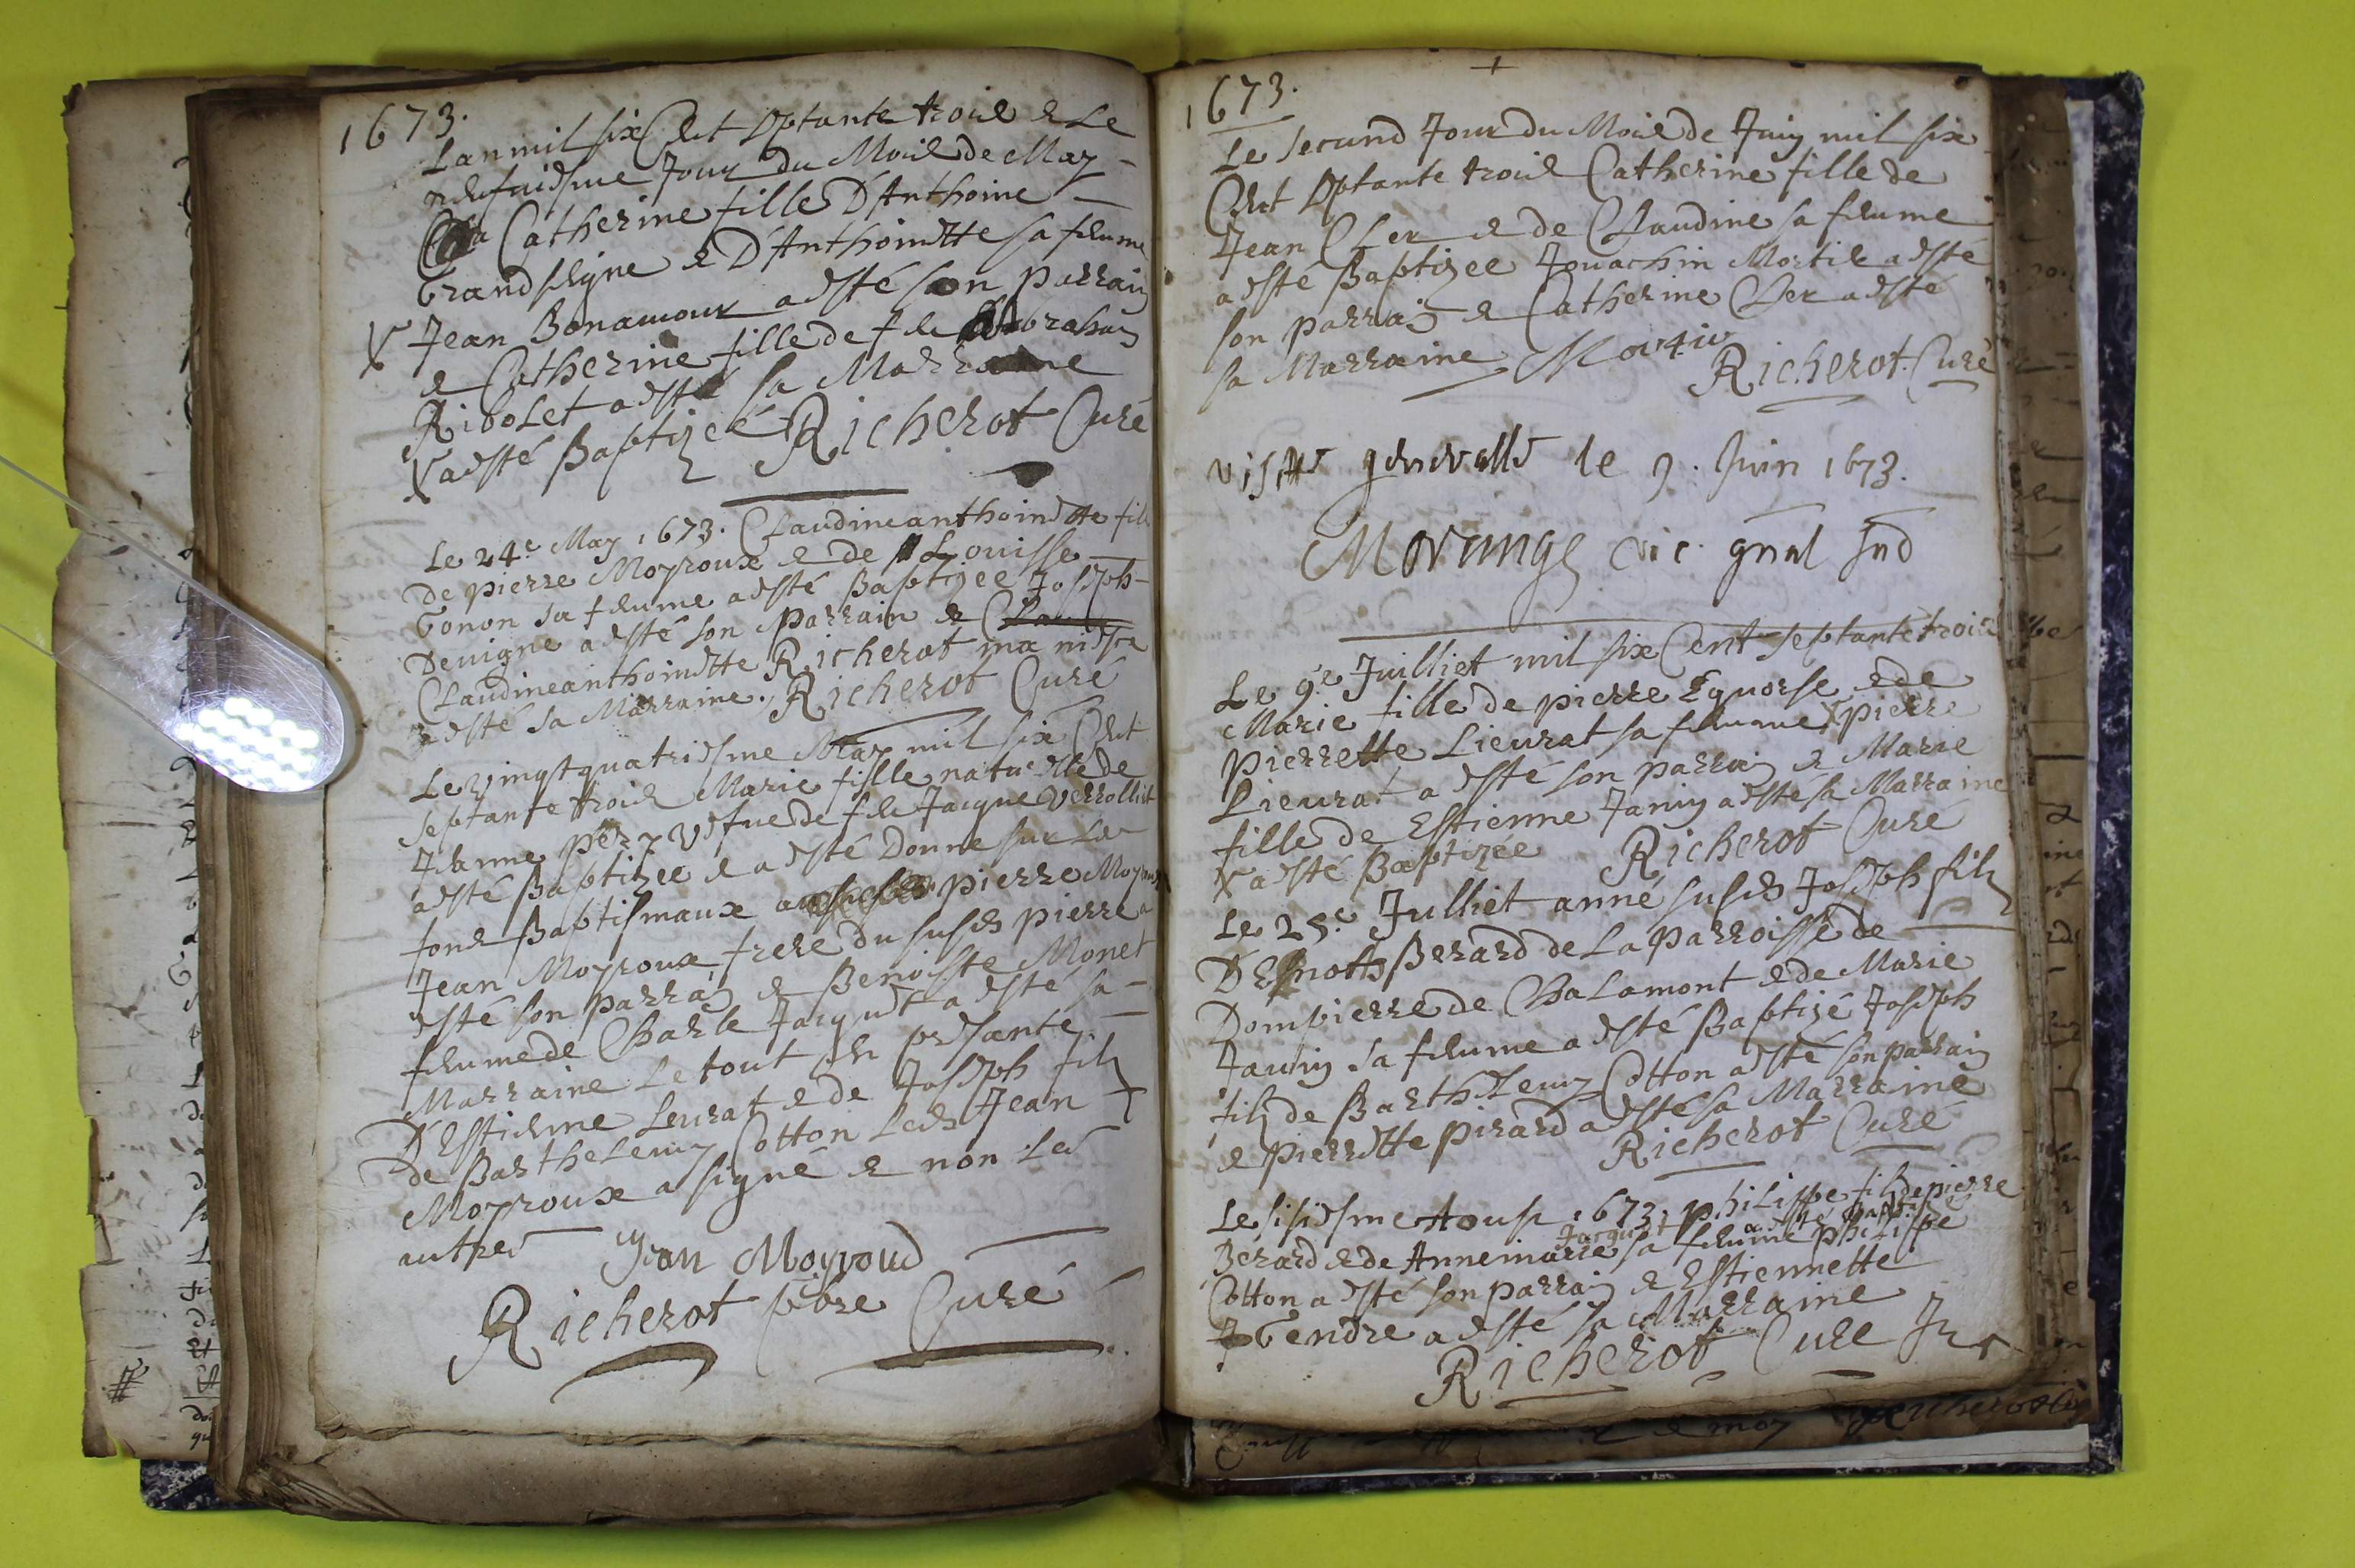 1673.
Lan mil six Cent septante trois & Le
neufuiesme Jour du Mois de May
Catherine fille D'Anthoine
Grandseigne & D'Anthoinette sa femme
X Jean Bonamour a esté son parrain
& Catherine fille de feu Abraham
Ribolet a esté sa Marraine
X a esté Baptizeé Richerot Curé
Le 24.e May 1673. Claudineanthoinette fille
De pierre Moyroux & de Louisse
Gonon sa femme a esté Baptizee Joseph
Deuigne a esté son parrain &
Claudineanthoinette Richerot ma niepce
a esté sa Marraine. Richerot Curé
Le vingtquatriesme May mil six Cent
septante trois Marie fille naturelle de
Jeanne pery vefue de feu Jacque Verrollet
a esté Baptizee & a esté Donne sur Les
fons Baptismaux pierre Moyroux
Jean Moyroux, frere du susd pierre a
esté son parrain & Benoiste Monet
femme de Charle Jacquet a esté sa
Marraine Le tout en presante
D'Estienne Leurat & de Joseph filz
de Barthelemy Cotton Led Jean
Moyroux a signé & non Les
autres Jean Moyroud
Richerot pbre Curé
1673.
Le second Jour du Mois de Juin mil six
Cent septante trois Catherine fille de
Jean Cler & de Claudine sa femme
a esté Baptizee Jouachin Mortie a esté
son parrain & Catherine Cler a esté
sa Marraine Mortie
Richerot. Curé
visitte generalle le 9. Juin 1673.
Morange vic. gnal
Le 9.e Juilliet mil six Cent septante trois
Marie fille de pierre Equorse & de
pierrette Lieurat sa femme X pierre
Lieurat a esté son parrain & Marie
fille de Estienne Janin a esté sa Marraine
X a esté Baptizee Richerot Curé
Le 25.e Julliet anné susd Joseph filz
D'Esnoth Berard de La parroisse de
Dompierre de Chalamont & de Marie
Janin sa femme a esté Baptizé Joseph
filz de Barthelemy Cotton a esté son parrain
& pierrette pirard a esté sa Marraine
Richerot Curé
Le sisiesme Aoust 1673. philippe filz de pierre
Jacquet a esté Baptizé
Berard & de Annemarie sa femme philippe
Cotton a esté son parrain & Estiennette
Gendre a esté sa Marraine
Richerot Curé